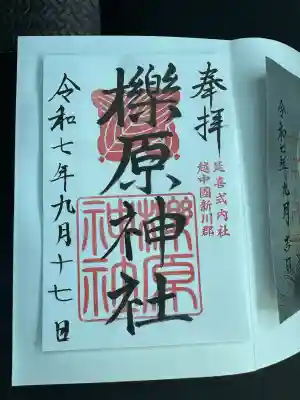 奉拝
延喜式内社
越中國新川郡
櫟原神社
櫟原神社
令和七年九月十七日